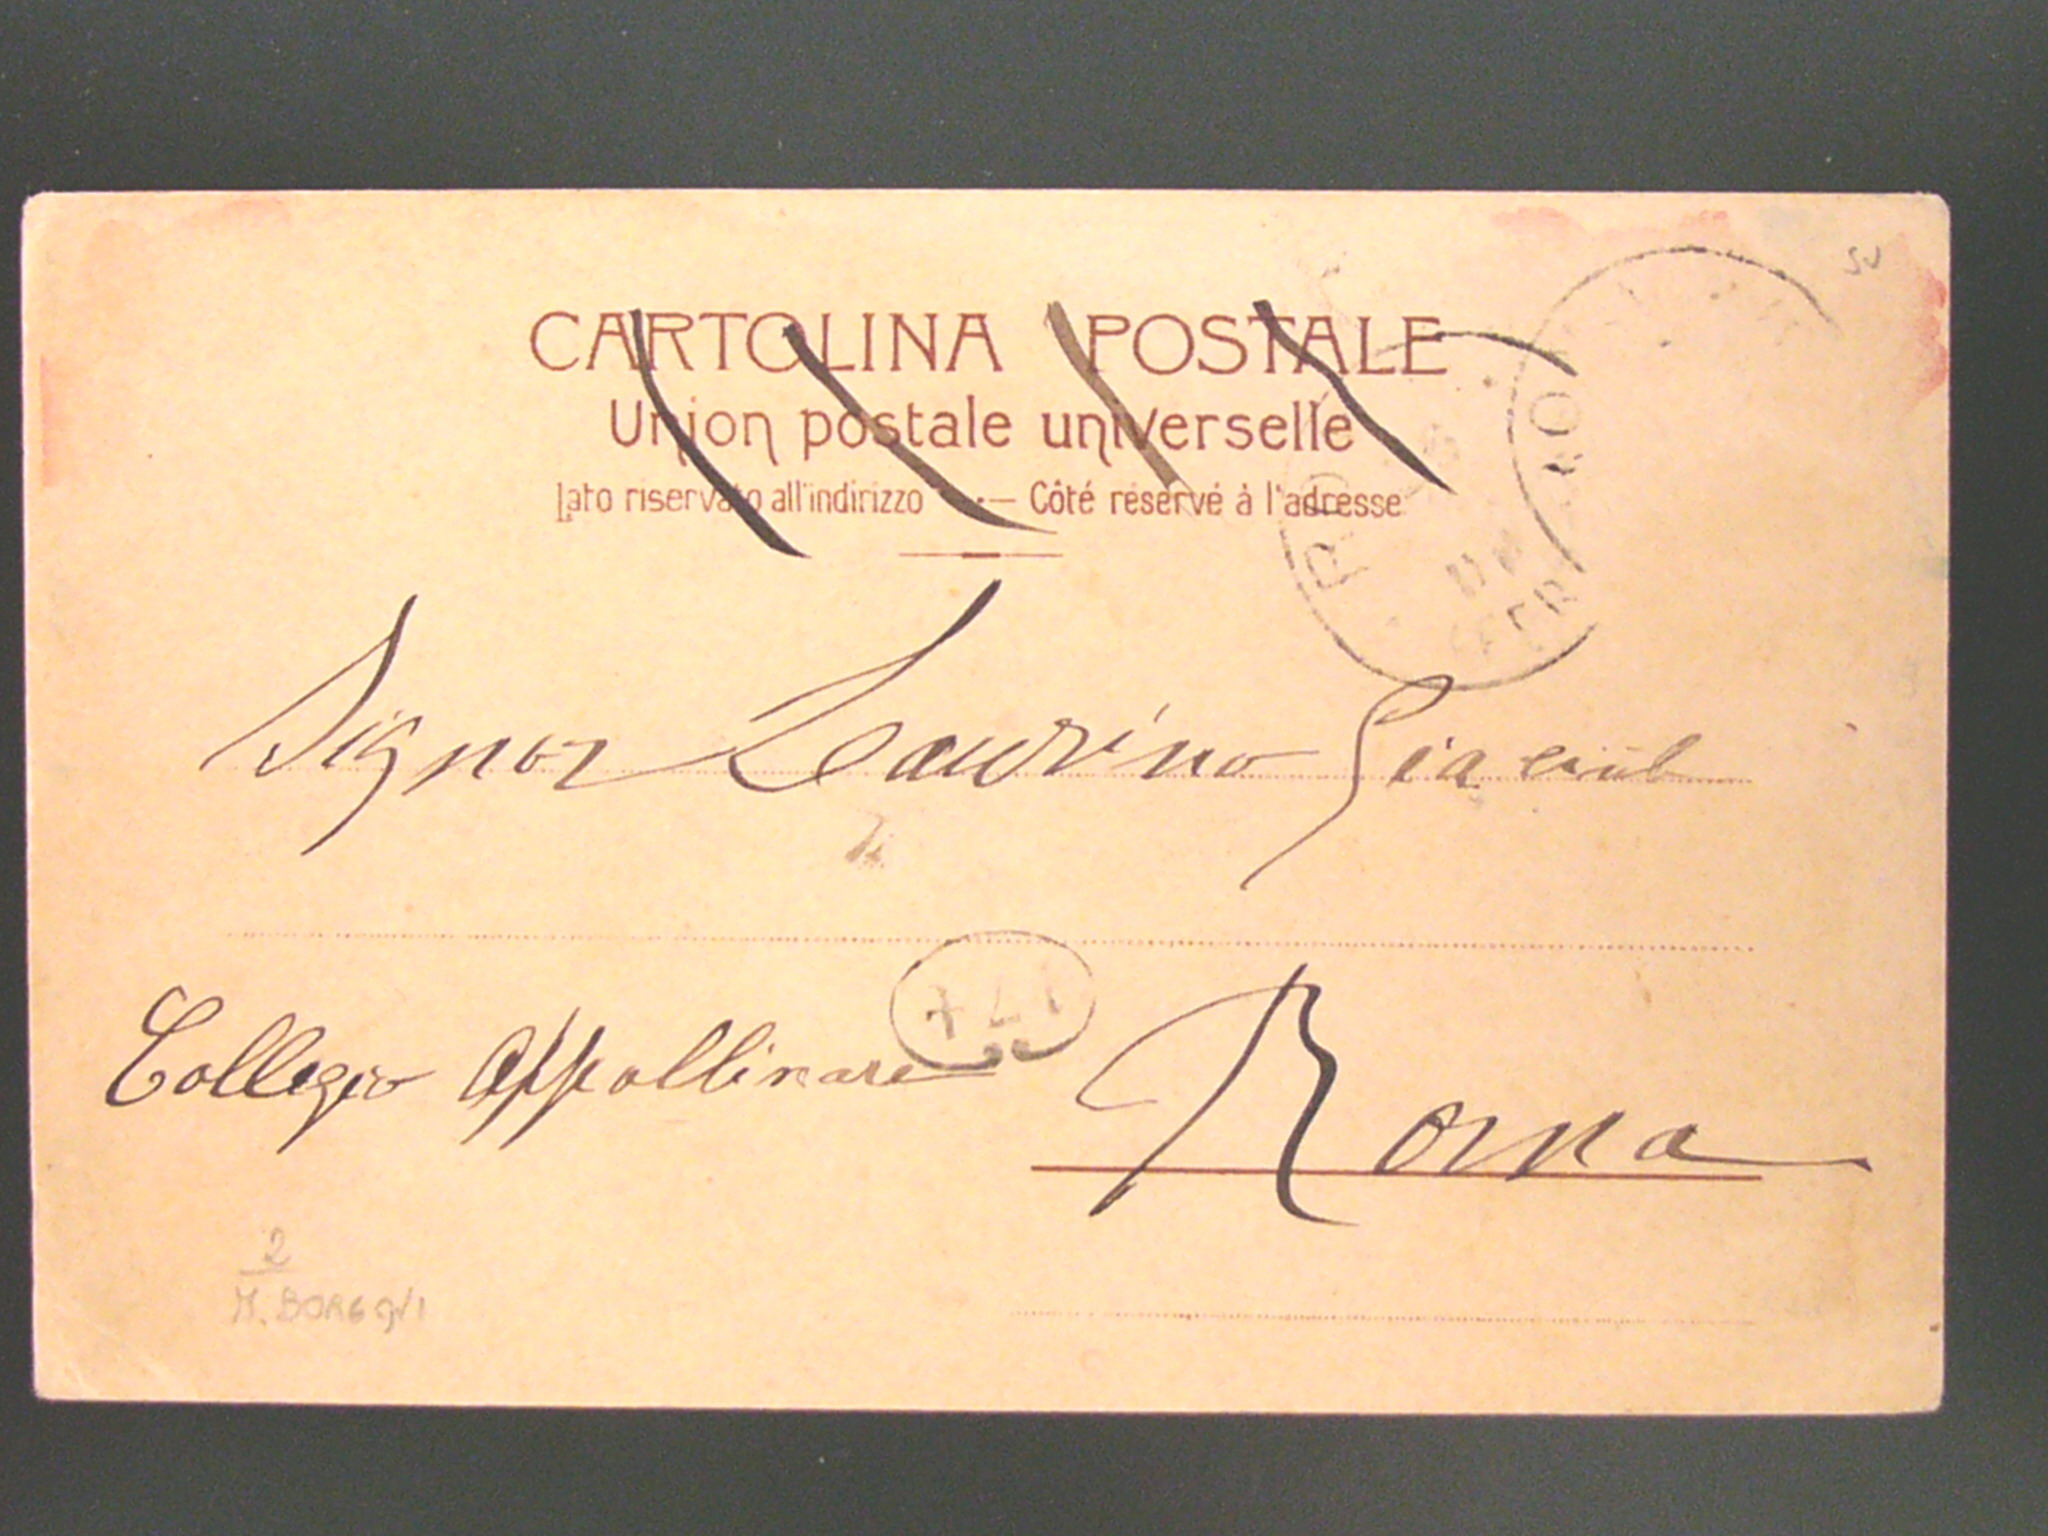 CARTOLINA POSTALE
Union postale universelle
Lato riservato all'indirizzo — Côté réservé à l'adresse
Signor Laurino
Collegio Appollinare
Roma
2
M. BORGOGNI